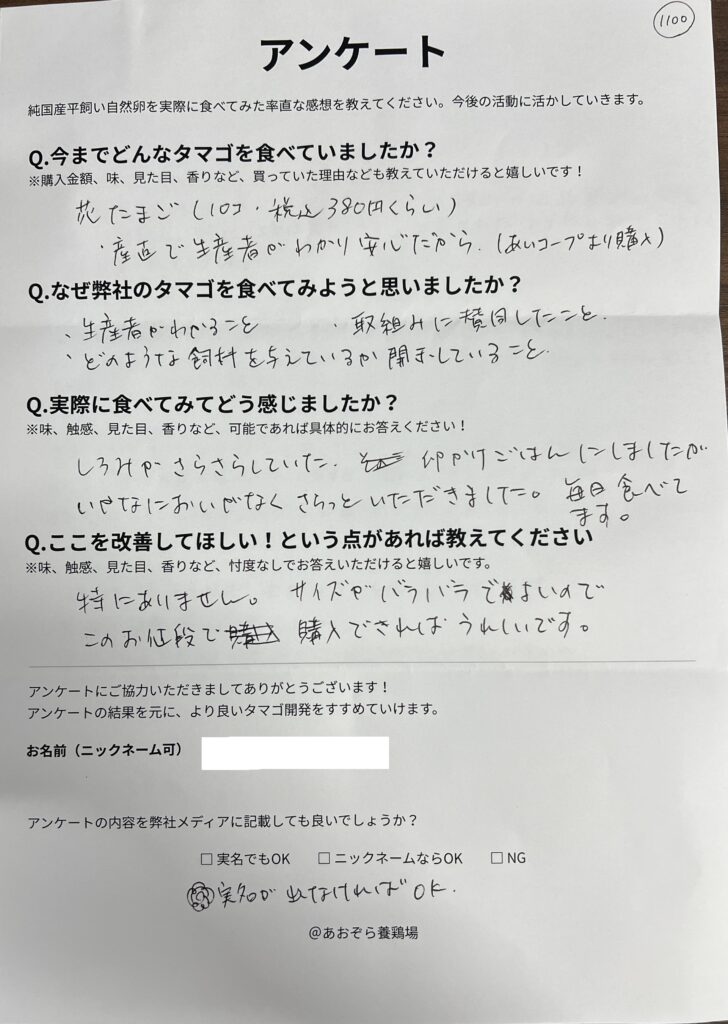 1100
アンケート
純国産平飼い自然卵を実際に食べてみた率直な感想を教えてください。今後の活動に活かしていきます。
Q.今までどんなタマゴを食べていましたか？
※購入金額、味、見た目、香りなど、買っていた理由なども教えていただけると嬉しいです！
花たまご（10コ・税込380円くらい）
・産直で生産者がわかり安心だから.（あいコープより購入）
Q.なぜ弊社のタマゴを食べてみようと思いましたか？
・生産者がわかること ・取組みに賛同したこと.
・どのような飼料を与えているか開示していること.
Q.実際に食べてみてどう感じましたか？
※味、触感、見た目、香りなど、可能であれば具体的にお答えください！
しろみがさらさらしていた. 卵かけごはんにしましたが
いやなにおいがなくさらっといただきました。毎日食べて
ます。
Q.ここを改善してほしい！という点があれば教えてください
※味、触感、見た目、香りなど、忖度なしでお答えいただけると嬉しいです。
特にありません。サイズがバラバラでよいので
このお値段で購入できればうれしいです。
アンケートにご協力いただきましてありがとうございます！
アンケートの結果を元に、より良いタマゴ開発をすすめていけます。
お名前（ニックネーム可）
アンケートの内容を弊社メディアに記載しても良いでしょうか？
□ 実名でもOK □ ニックネームならOK □ NG
実名が出なければOK.
@あおぞら養鶏場